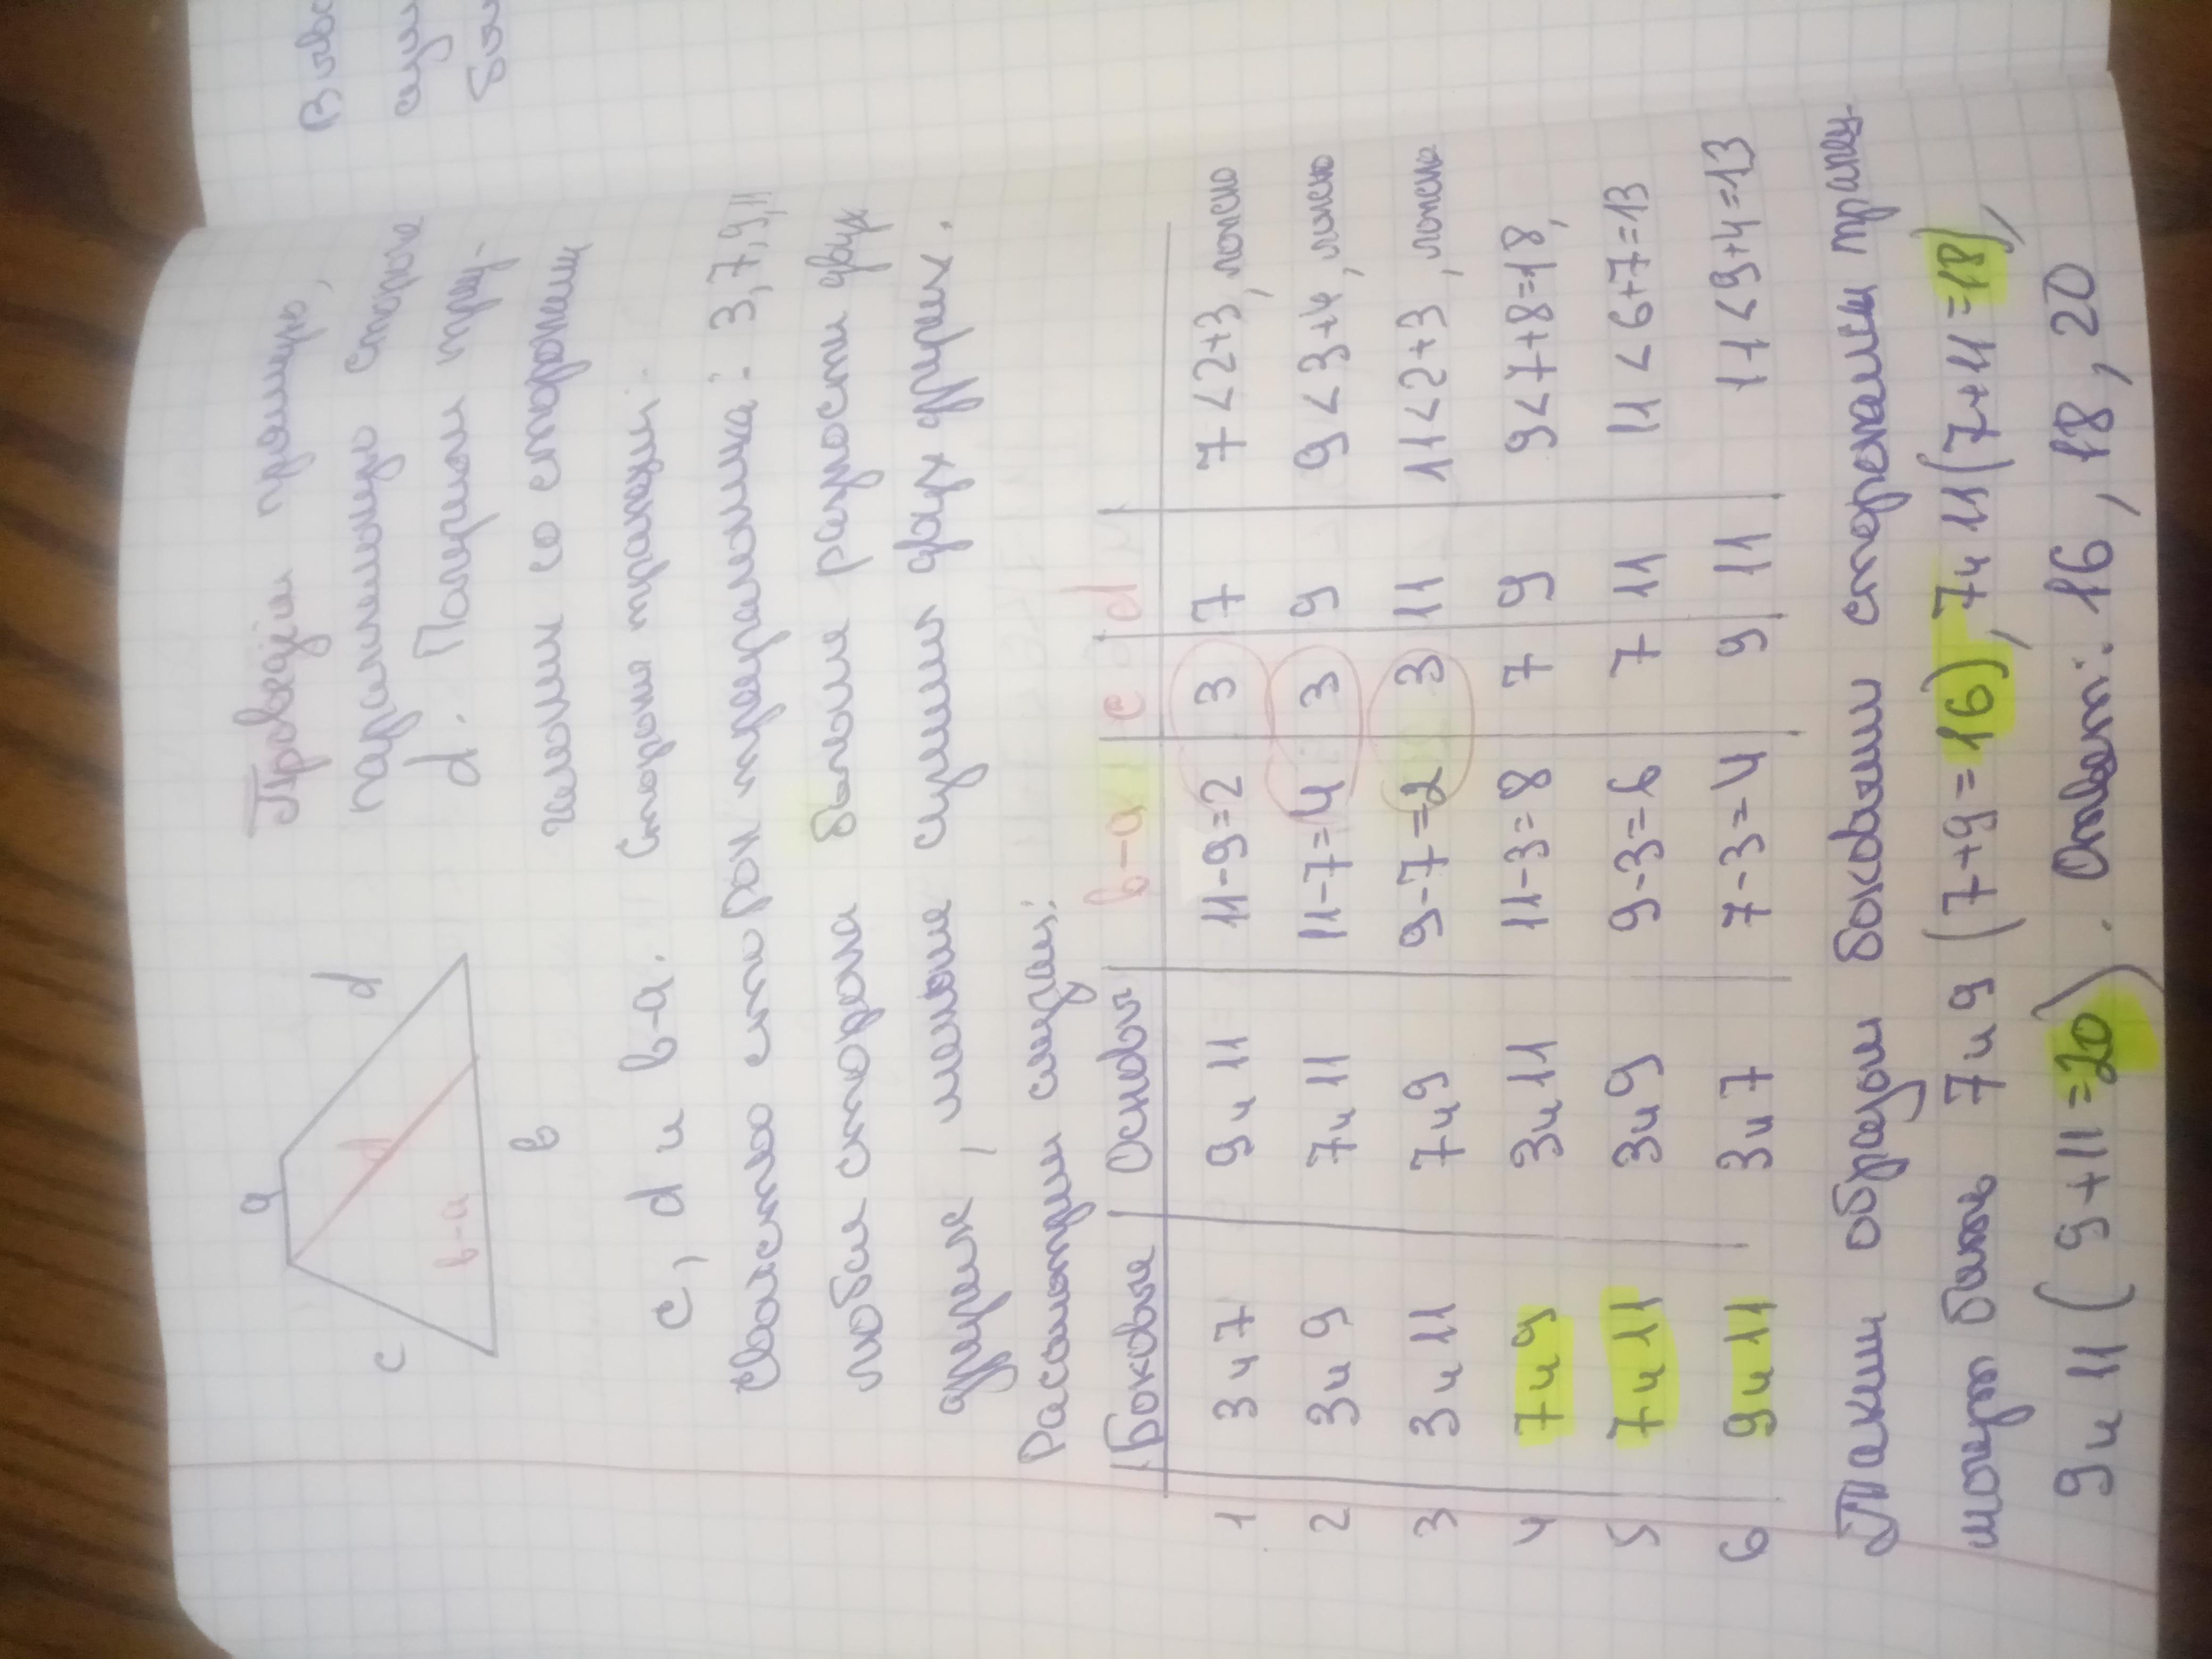 Вивс
сум
бил
a
c
d
d
b-a
b
Проведём прямую,
параллельную стороне
d. Получили треу-
гольник со сторонами
c, d и b-a. Стороны трапеции:
Свойство сторон треугольника: 3, 7, 9, 11
любая сторона больше разности двух
других, меньше суммы двух других.
Рассмотрим случаи:
Боковые Основы b-a c d
1 3 и 7 9 и 11 11-9=2 3 7 7<2+3, ложно
2 3 и 9 7 и 11 11-7=4 3 9 9<3+4, ложно
3 3 и 11 7 и 9 9-7=2 3 11 11<2+3, ложно
4 7 и 9 3 и 11 11-3=8 7 9 9<7+8=18,
5 7 и 11 3 и 9 9-3=6 7 11 11<6+7=13
6 9 и 11 3 и 7 7-3=4 9 11 11<9+4=13
Таким образом боковыми сторонами трапец.
могут быть 7 и 9 (7+9=16), 7 и 11 (7+11=18),
9 и 11 (9+11=20). Ответ: 16, 18, 20